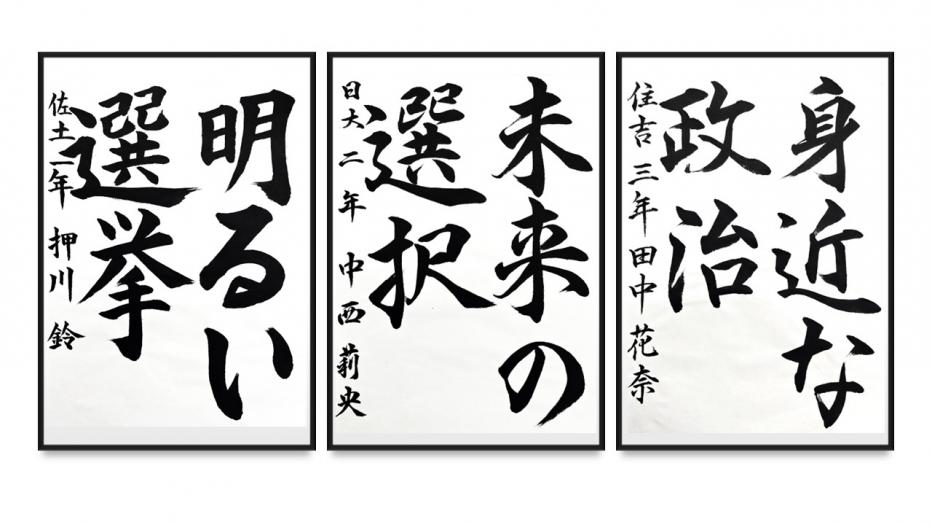 明るい
選挙
佐土一年 押川 鈴
未来の
選択
日大二年 中西 莉央
身近な
政治
住吉三年 田中 花奈